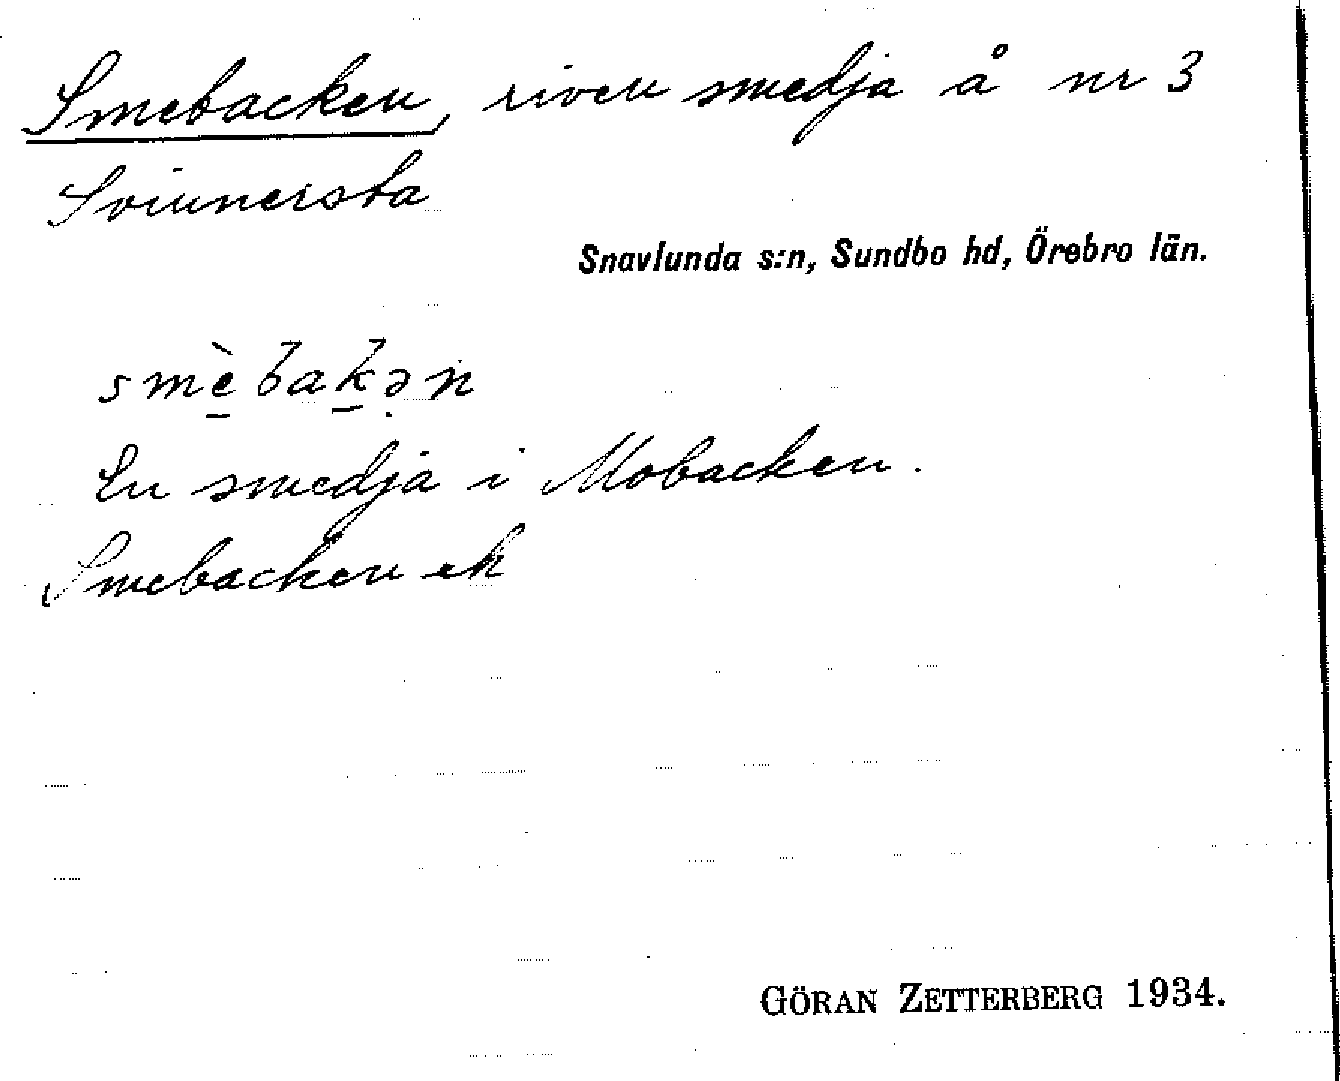 Smebacken, riven smedja å nr 3
Svinnersta
Snavlunda s:n, Sundbo hd, Örebro län.
smèbakən
En smedja i Mobacken.
Smebacken ek
GÖRAN ZETTERBERG 1934.